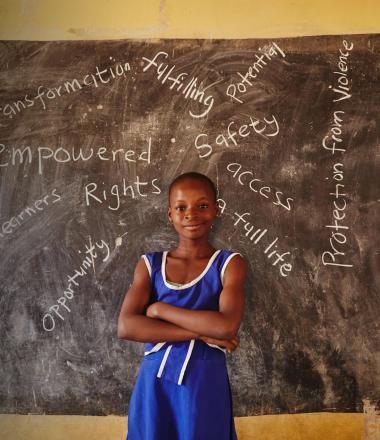 ansformation
fulfilling
Potential
Safety
Empowered
Rights
access
Learners
a full life
Opportunity
Protection from Violence